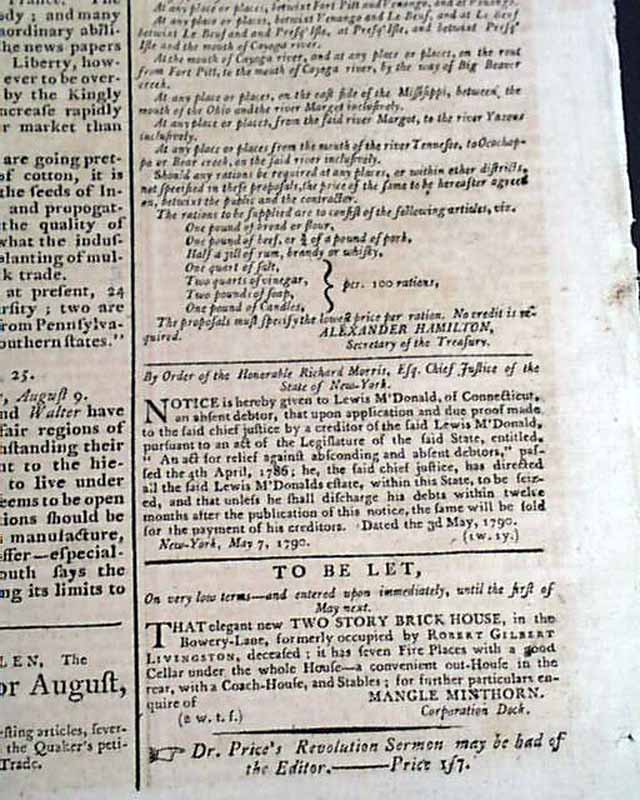 ody; and many
aordinary abili-
the news papers
Liberty, how-
ever to be over-
by the Kingly
ncrease rapidly
r market than
are going pret-
of cotton, it is
the seeds of In-
and propogat-
the quality of
what the indus-
planting of mul-
k trade.
at present, 24
rsity; two are
rom Pennsylva-
outhern states."
25.
, August 9.
nd Walter have
fair regions of
hstanding their
nt to the hie-
to live under
eems to be open
tions should be
manufacture,
offer—especial-
outh says the
ng its limits to
LEN, The
or August,
esting articles, sever-
the Quaker's peti-
Trade.
At any place or places, betwixt Fort Pitt and Venango, and at Venango.
At any place or places, betwixt Venango and Le Beuf, and at Le Beuf
betwixt Le Beuf and and Presq' Isle, at Presq' Isle, and betwixt Presq'
Isle and the mouth of Cayoga river.
At the mouth of Cayoga river, and at any place or places, on the rout
from Fort Pitt, to the mouth of Cayoga river, by the way of Big Beaver
creek.
At any place or places, on the east side of the Missisippi, between the
mouth of the Ohio and the river Margot inclusively.
At any place or places, from the said river Margot, to the river Yazous
inclusively.
At any place or places from the mouth of the river Tennesee, to Ocochap-
pa or Bear creek, on the said river inclusively.
Should any rations be required at any places, or within other districts,
not specified in these proposals, the price of the same to be hereafter agreed
on, betwixt the public and the contractor.
The rations to be supplied are to consist of the following articles, viz.
One pound of bread or flour,
One pound of beef, or ¾ of a pound of pork,
Half a jill of rum, brandy or whisky,
One quart of salt,
Two quarts of vinegar,
Two pounds of soap,
One pound of Candles,
} per. 100 rations,
The proposals must specify the lowest price per ration. No credit is re-
quired. ALEXANDER HAMILTON,
Secretary of the Treasury.
By Order of the Honorable Richard Morris, Esq. Chief Justice of the
State of New-York.
NOTICE is hereby given to Lewis M'Donald, of Connecticut,
an absent debtor, that upon application and due proof made
to the said chief justice by a creditor of the said Lewis M'Donald,
pursuant to an act of the Legislature of the said State, entitled,
" An act for relief against absconding and absent debtors," pas-
sed the 4th April, 1786; he, the said chief justice, has directed
all the said Lewis M'Donalds estate, within this State, to be seiz-
ed, and that unless he shall discharge his debts within twelve
months after the publication of this notice, the same will be sold
for the payment of his creditors. Dated the 3d May, 1790.
New-York, May 7, 1790. (1w. 1y.)
TO BE LET,
On very low terms—and entered upon immediately, until the first of
May next.
THAT elegant new TWO STORY BRICK HOUSE, in the
Bowery-Lane, formerly occupied by ROBERT GILBERT
LIVINGSTON, deceased; it has seven Fire Places with a good
Cellar under the whole House—a convenient out-House in the
rear, with a Coach-House, and Stables; for further particulars en-
quire of MANGLE MINTHORN.
(2 w. t. f.) Corporation Dock.
☞ Dr. Price's Revolution Sermon may be had of
the Editor.——Price 1/7.